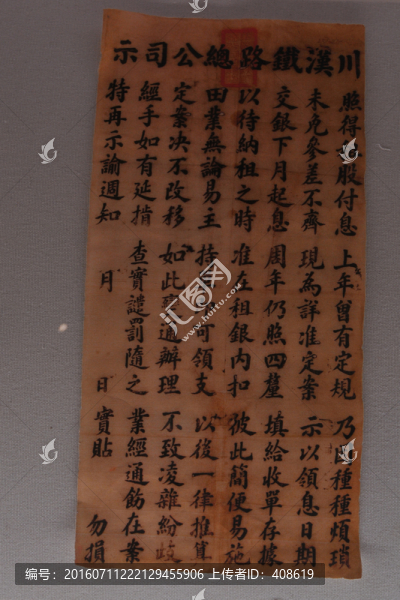 川漢鐵路總公司示
照得股付息 上年曾有定規 乃因種種煩瑣
未免參差不齊 現為詳准定案 示以領息日期
交銀下月起息 周年仍照四釐 填給收單存據
以待納租之時 准在租銀內扣 彼此簡便易施
田業無論易主 持可領支 以後一律推算
定案决不改移 如此通辦理 不致凌雜紛歧
經手如有延揹 查實譴罰隨之 業經通飭在案
特再示諭週知 月 日 實貼 勿損
汇图网
www.huitu.com
编号:20160711222129455906 上传者ID:408619